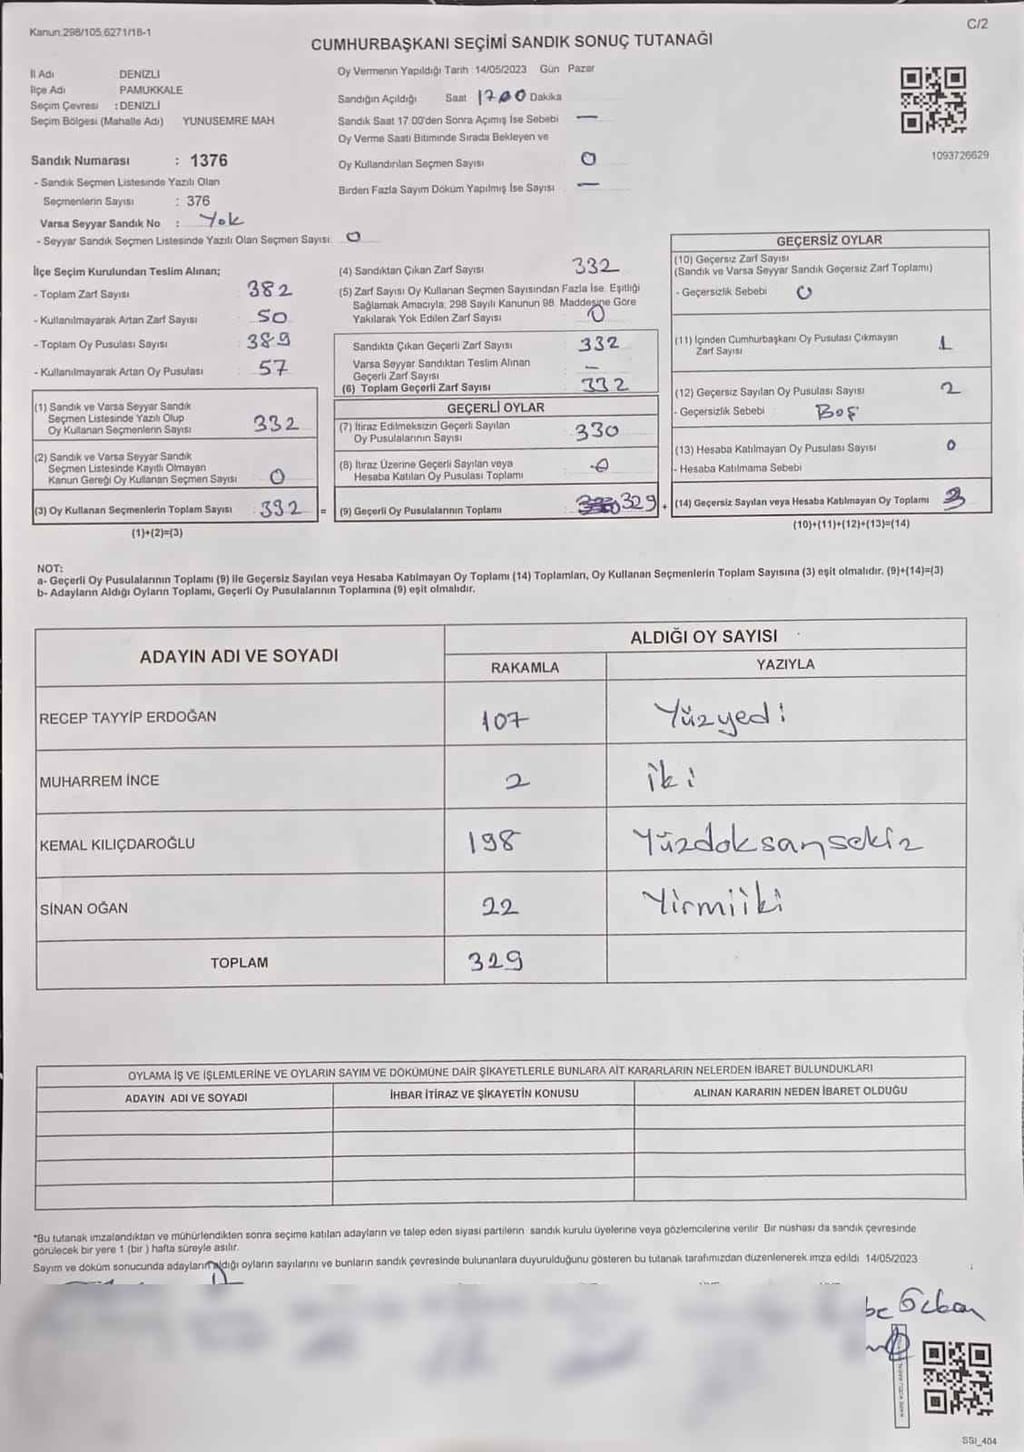 Kanun.298/105.6271/18-1
C/2
CUMHURBAŞKANI SEÇİMİ SANDIK SONUÇ TUTANAĞI
İl Adı DENİZLİ
İlçe Adı PAMUKKALE
Seçim Çevresi : DENİZLİ
Seçim Bölgesi (Mahalle Adı) YUNUSEMRE MAH
Sandık Numarası : 1376
- Sandık Seçmen Listesinde Yazılı Olan
Seçmenlerin Sayısı : 376
Varsa Seyyar Sandık No : Yok
- Seyyar Sandık Seçmen Listesinde Yazılı Olan Seçmen Sayısı. 0
Oy Vermenin Yapıldığı Tarih 14/05/2023 Gün Pazar
Sandığın Açıldığı Saat 17 00 Dakika
Sandık Saat 17 00'den Sonra Açımış İse Sebebi —
Oy Verme Saati Bitiminde Sırada Bekleyen ve
Oy Kullandırılan Seçmen Sayısı 0
Birden Fazla Sayım Döküm Yapılmış İse Sayısı —
1093726629
İlçe Seçim Kurulundan Teslim Alınan;
- Toplam Zarf Sayısı 382
- Kullanılmayarak Artan Zarf Sayısı 50
- Toplam Oy Pusulası Sayısı 389
- Kullanılmayarak Artan Oy Pusulası 57
(1) Sandık ve Varsa Seyyar Sandık
Seçmen Listesinde Yazılı Olup
Oy Kullanan Seçmenlerin Sayısı 332
(2) Sandık ve Varsa Seyyar Sandık
Seçmen Listesinde Kayıtlı Olmayan
Kanun Gereği Oy Kullanan Seçmen Sayısı 0
(3) Oy Kullanan Seçmenlerin Toplam Sayısı : 332 =
(1)+(2)=(3)
(4) Sandıktan Çıkan Zarf Sayısı 332
(5) Zarf Sayısı Oy Kullanan Seçmen Sayısından Fazla İse. Eşitliği
Sağlamak Amacıyla, 298 Sayılı Kanunun 98. Maddesine Göre
Yakılarak Yok Edilen Zarf Sayısı 0
Sandıkta Çıkan Geçerli Zarf Sayısı 332
Varsa Seyyar Sandıktan Teslim Alınan
Geçerli Zarf Sayısı —
(6) Toplam Geçerli Zarf Sayısı 332
GEÇERLİ OYLAR
(7) İtiraz Edilmeksizin Geçerli Sayılan
Oy Pusulalarının Sayısı 330
(8) İtiraz Üzerine Geçerli Sayılan veya
Hesaba Katılan Oy Pusulası Toplamı 0
(9) Geçerli Oy Pusulalarının Toplamı : 329 +
GEÇERSİZ OYLAR
(10) Geçersiz Zarf Sayısı
(Sandık ve Varsa Seyyar Sandık Geçersiz Zarf Toplamı)
- Geçersizlik Sebebi 0
(11) İçinden Cumhurbaşkanı Oy Pusulası Çıkmayan
Zarf Sayısı 1
(12) Geçersiz Sayılan Oy Pusulası Sayısı 2
- Geçersizlik Sebebi Boş
(13) Hesaba Katılmayan Oy Pusulası Sayısı 0
- Hesaba Katılmama Sebebi
(14) Geçersiz Sayılan veya Hesaba Katılmayan Oy Toplamı 3
(10)+(11)+(12)+(13)=(14)
NOT:
a- Geçerli Oy Pusulalarının Toplamı (9) ile Geçersiz Sayılan veya Hesaba Katılmayan Oy Toplamı (14) Toplamları, Oy Kullanan Seçmenlerin Toplam Sayısına (3) eşit olmalıdır. (9)+(14)=(3)
b- Adayların Aldığı Oyların Toplamı, Geçerli Oy Pusulalarının Toplamına (9) eşit olmalıdır.
ADAYIN ADI VE SOYADI
ALDIĞI OY SAYISI
RAKAMLA YAZIYLA
RECEP TAYYİP ERDOĞAN 107 Yüzyedi
MUHARREM İNCE 2 iki
KEMAL KILIÇDAROĞLU 198 Yüzdoksansekiz
SİNAN OĞAN 22 Yirmiiki
TOPLAM 329
OYLAMA İŞ VE İŞLEMLERİNE VE OYLARIN SAYIM VE DÖKÜMÜNE DAİR ŞİKAYETLERLE BUNLARA AİT KARARLARIN NELERDEN İBARET BULUNDUKLARI
ADAYIN ADI VE SOYADI İHBAR İTİRAZ VE ŞİKAYETİN KONUSU ALINAN KARARIN NEDEN İBARET OLDUĞU
*Bu tutanak imzalandıktan ve mühürlendikten sonra seçime katılan adayların ve talep eden siyasi partilerin sandık kurulu üyelerine veya gözlemcilerine verilir Bir nüshası da sandık çevresinde
görülecek bir yere 1 (bir ) hafta süreyle asılır.
Sayım ve döküm sonucunda adayların aldığı oyların sayılarını ve bunların sandık çevresinde bulunanlara duyurulduğunu gösteren bu tutanak tarafımızdan düzenlenerek imza edildi 14/05/2023
SSI_404